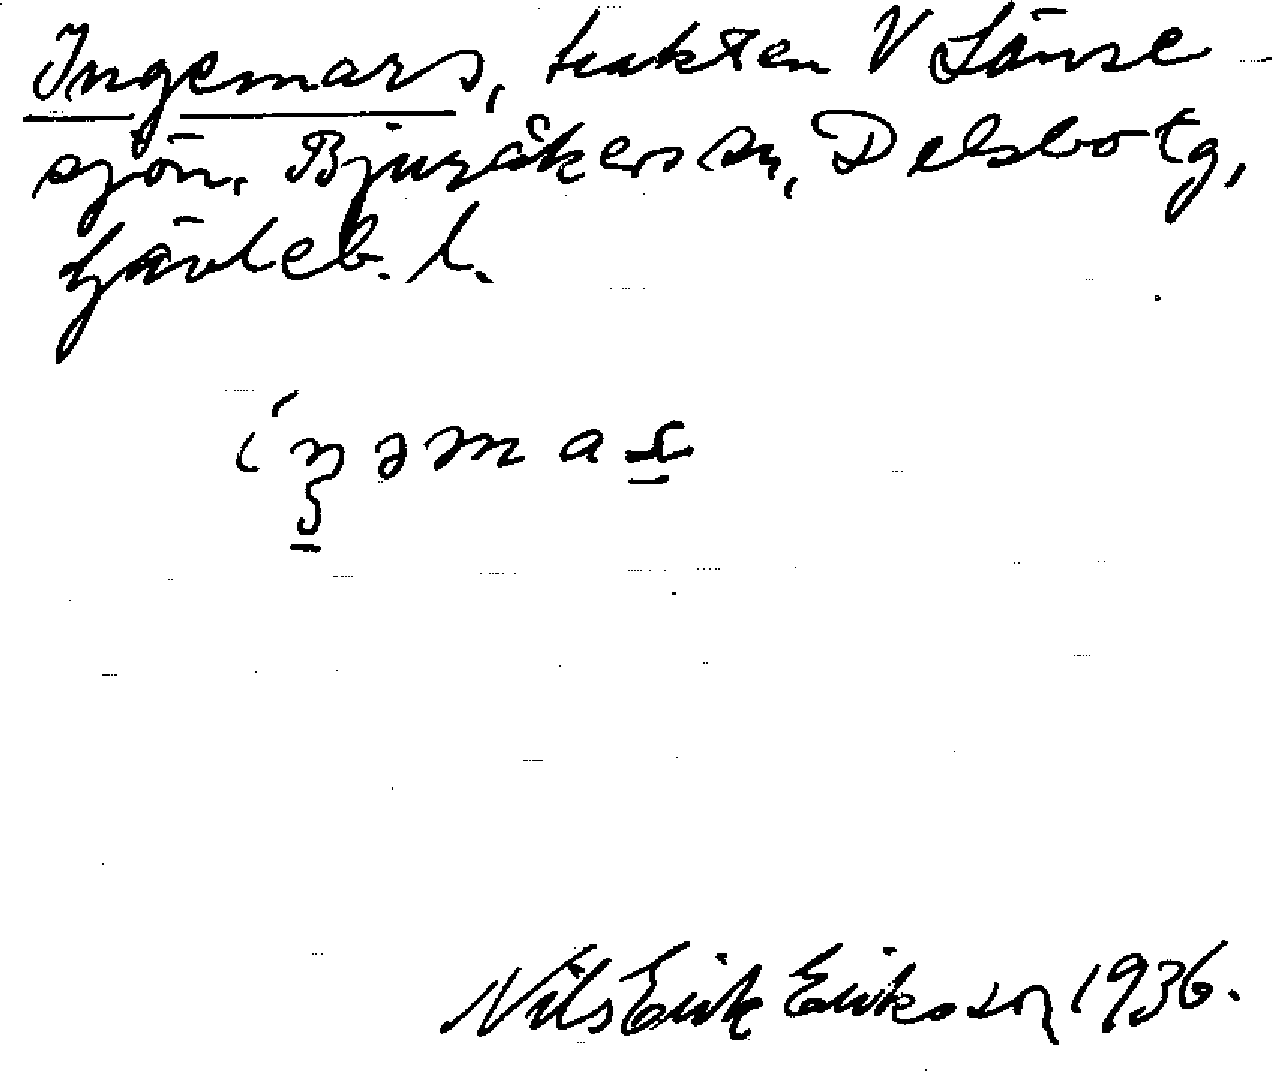 Ingemars, trakten V Länse-
sjön, Bjuråkers sn, Delsbo tg,
Gävleb. l.
Nils Erik Eriksson 1936.